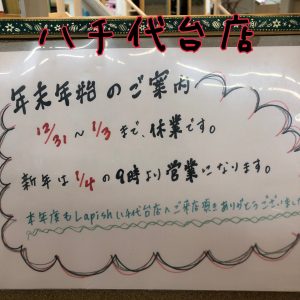 八千代台店
年末年始のご案内
12/31 〜 1/3 まで、休業です。
新年は 1/4 の9時より営業になります。
本年度もLapish八千代台店へご来店頂きありがとうございました